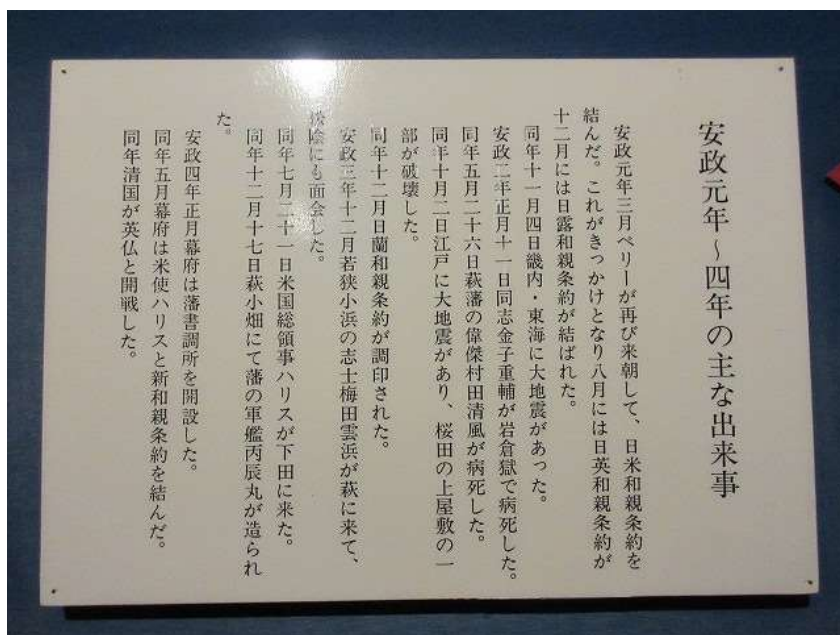 安政元年～四年の主な出来事
安政元年三月ペリーが再び来朝して、日米和親条約を
結んだ。これがきっかけとなり八月には日英和親条約が
十二月には日露和親条約が結ばれた。
同年十一月四日畿内・東海に大地震があった。
安政二年正月十一日同志金子重輔が岩倉獄で病死した。
同年五月二十六日萩藩の偉傑村田清風が病死した。
同年十月二日江戸に大地震があり、桜田の上屋敷の一
部が破壊した。
同年十二月日蘭和親条約が調印された。
安政三年十二月若狭小浜の志士梅田雲浜が萩に来て、
松陰にも面会した。
同年七月二十一日米国総領事ハリスが下田に来た。
同年十二月十七日萩小畑にて藩の軍艦丙辰丸が造られ
た。
安政四年正月幕府は藩書調所を開設した。
同年五月幕府は米使ハリスと新和親条約を結んだ。
同年清国が英仏と開戦した。